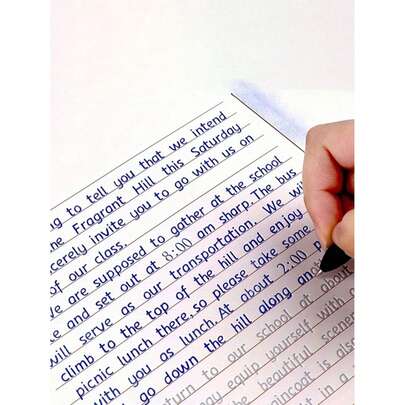 ng to tell you that we intend
he Fragrant Hill this Saturday
cerely invite you to go with us on
of our class.
We are supposed to gather at the school
te and set out at 8:00 am sharp. The bus
will serve as our transportation. We wil
climb to the top of the hill and enjoy
picnic lunch there, so please take some
with you as lunch. At about 2:00 p
go down the hill along an
turn to our school at about
ay equip yourself with a
he beautiful scener
aincoat is also
t in a